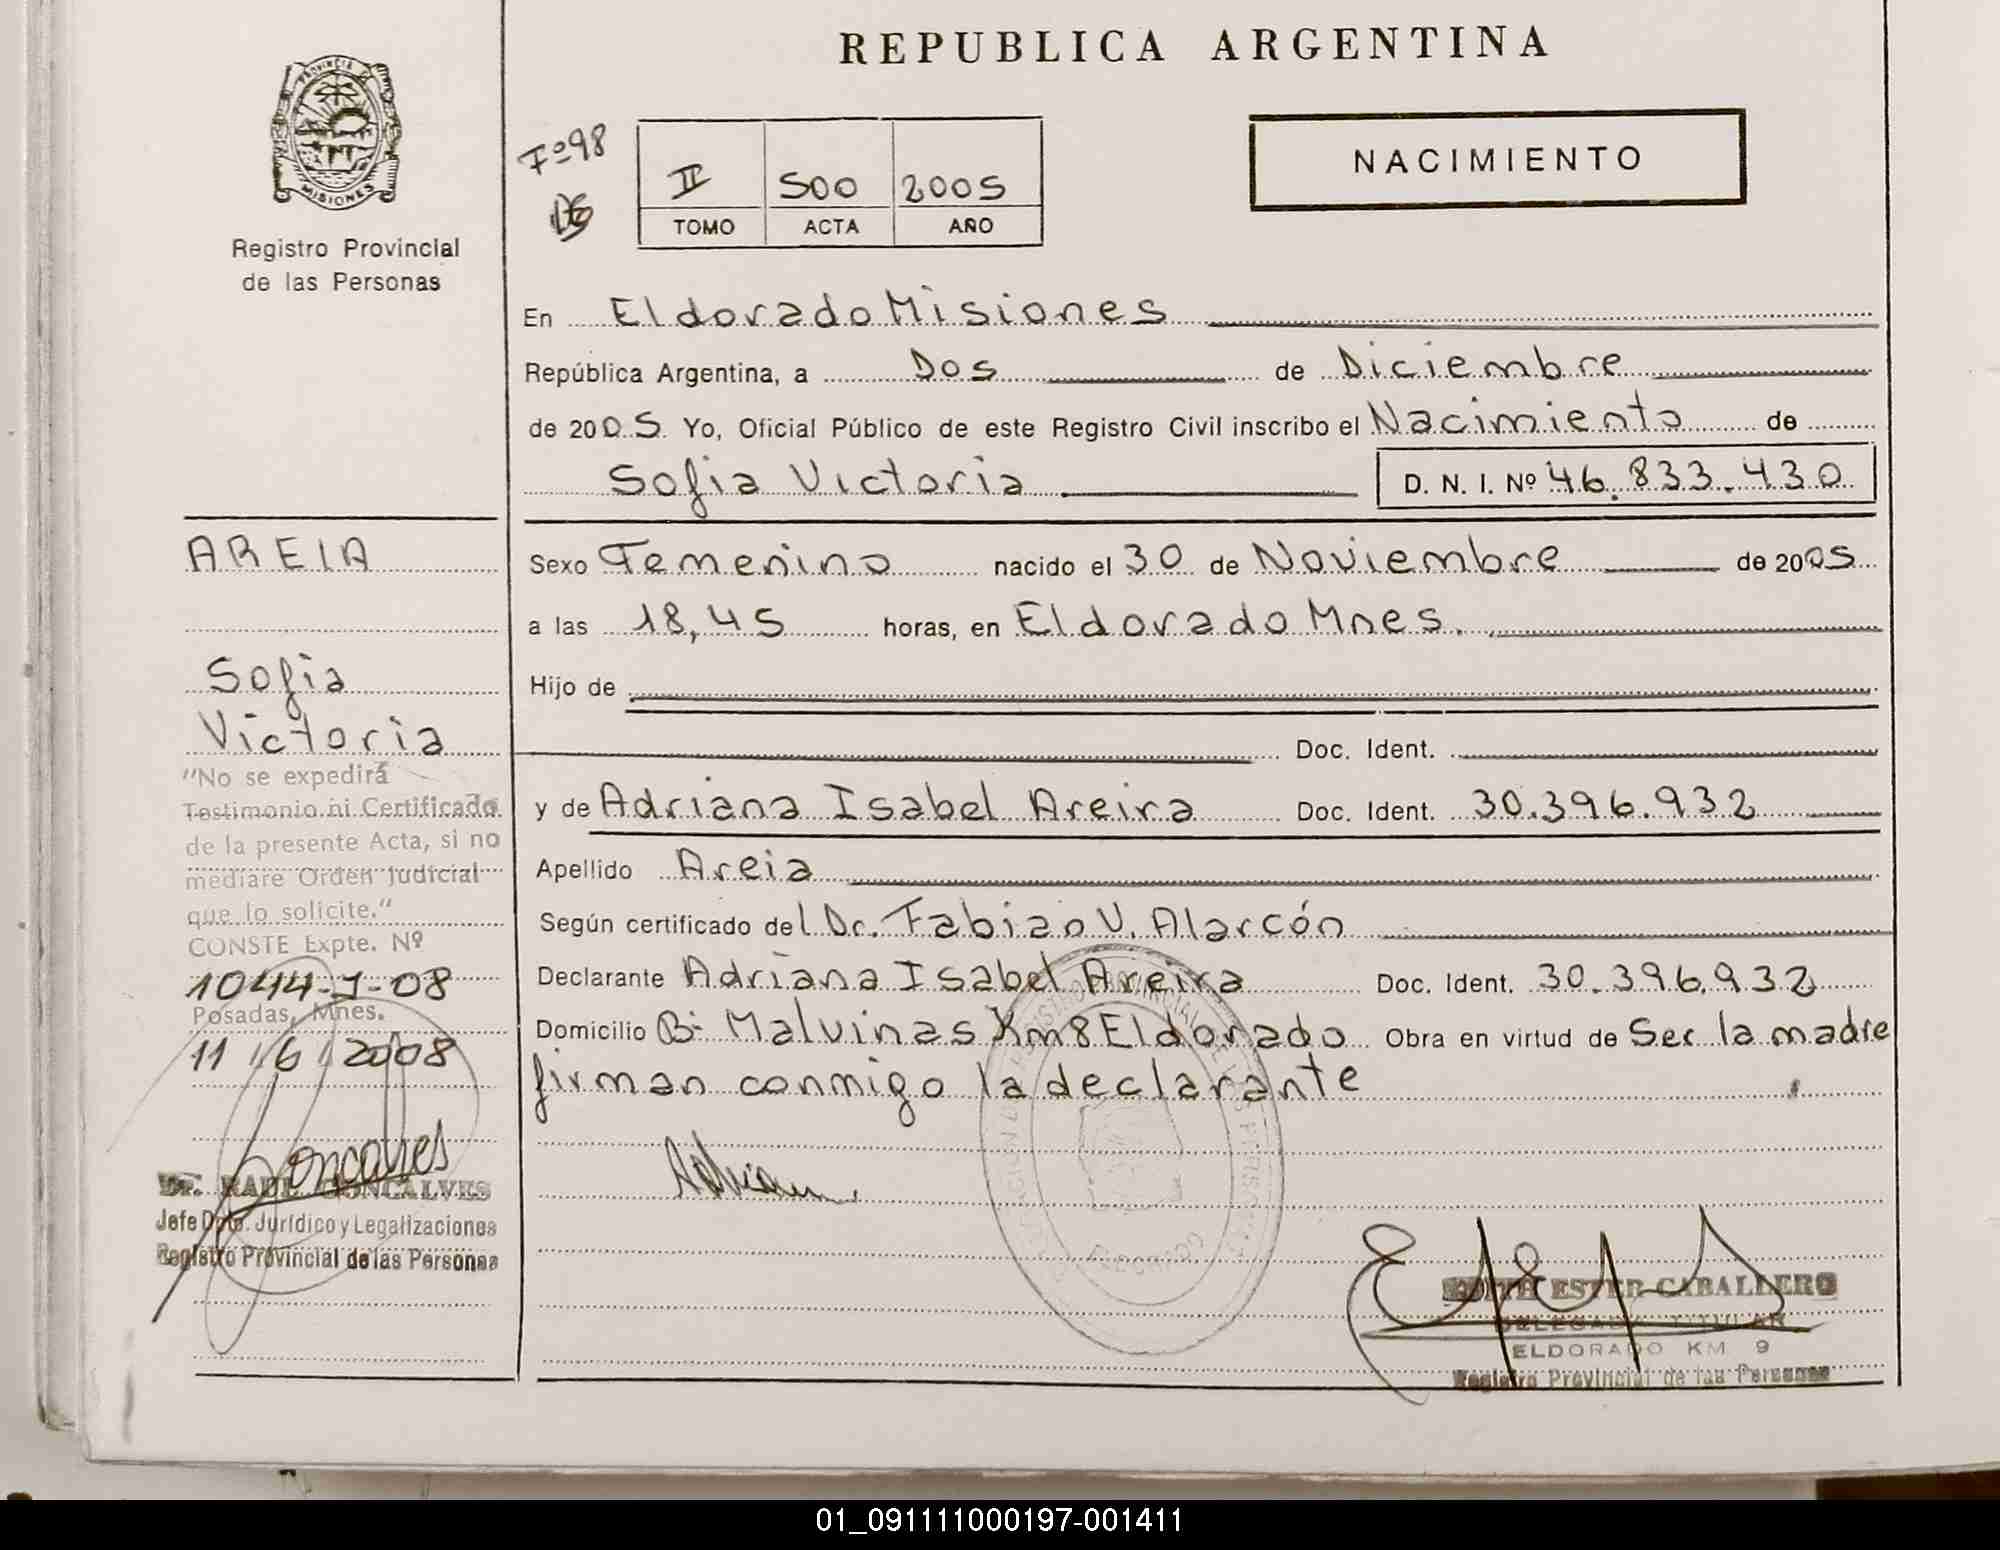 REPUBLICA ARGENTINA
PROVINCIA DE
MISIONES
Registro Provincial
de las Personas
Fº 98
II 500 2005
TOMO ACTA AÑO
NACIMIENTO
En Eldorado Misiones
República Argentina, a Dos de Diciembre
de 2005 Yo, Oficial Público de este Registro Civil inscribo el Nacimiento de
Sofia Victoria D. N. I. Nº 46.833.430
AREIA
Sofia
Victoria
"No se expedirá
Testimonio ni Certificado
de la presente Acta, si no
mediare Orden Judicial
que lo solicite."
CONSTE Expte. Nº
1044-J-08
Posadas, Mnes.
11 / 6 / 2008
Goncalves
Dr. RAUL GONCALVES
Jefe Dpto. Jurídico y Legalizaciones
Registro Provincial de las Personas
Sexo Femenino nacido el 30 de Noviembre de 2005
a las 18,45 horas, en Eldorado Mnes.
Hijo de
Doc. Ident.
y de Adriana Isabel Areira Doc. Ident. 30.396.932
Apellido Areia
Según certificado del Dr. Fabian V. Alarcón
Declarante Adriana Isabel Areira Doc. Ident. 30.396.932
Domicilio Bº Malvinas Km 8 Eldorado Obra en virtud de Ser la madre
firman conmigo la declarante
ELDORADO
EDITH ESTER CABALLERO
DELEGADA TITULAR
ELDORADO KM 9
Registro Provincial de las Personas
01_091111000197-001411